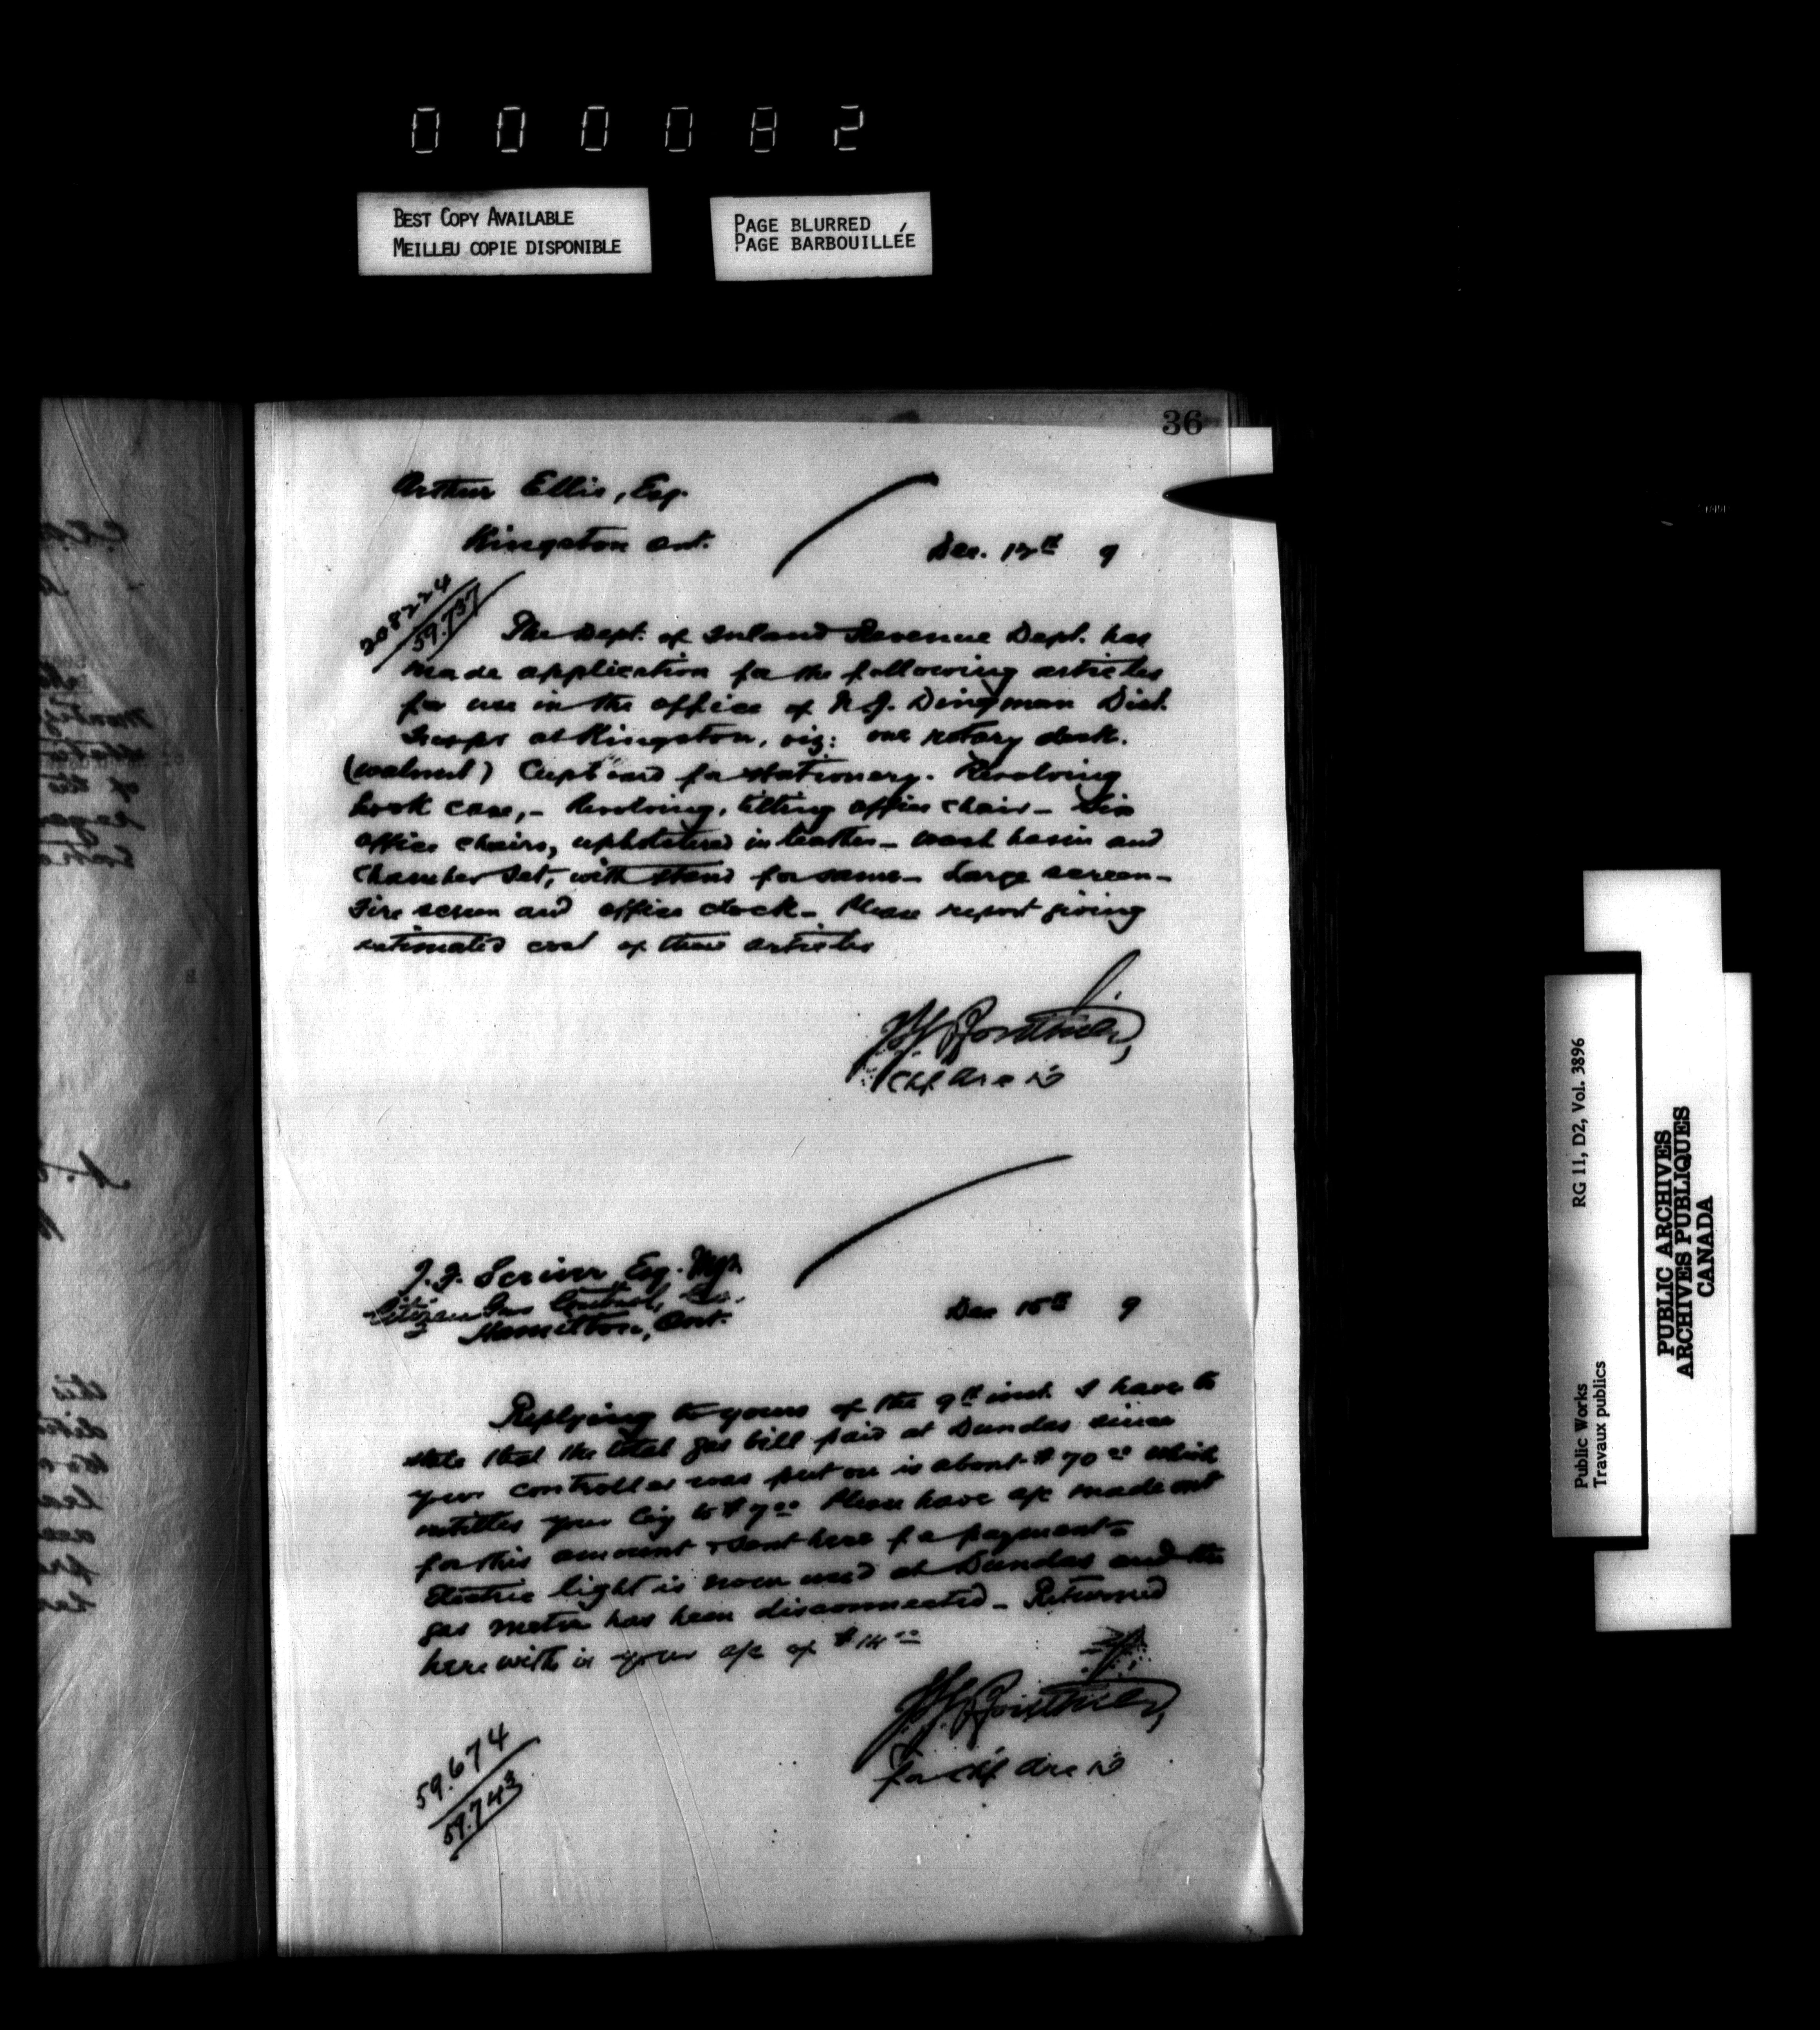 000082
BEST COPY AVAILABLE
MEILLEU COPIE DISPONIBLE
PAGE BLURRED
PAGE BARBOUILLÉE
36
Arthur Ellis, Esq.
Kingston Ont.
Dec. 9
208224
59.737
The Dept. of Inland Revenue Dept. has
made application for the following articles
for use in the office of Dingman Dist.
Inspr at Kingston, viz: one rotary desk.
(walnut) Cupboard for stationery. Revolving
book case, - Revolving, tilting office chair - Six
office chairs, upholstered in leather - wash basin and
chamber set, with stand for same - Large screen -
Fire screen and office clock - Please report giving
estimated cost of these articles
Chf Arc
Esq. Mgr.
Citizen Gas Control, Co.
Hamilton, Ont.
Dec 15th 9
Replying to yours of the 9th inst. I have to
state that the total gas bill paid at Dundas since
your controller was put on is about $70 00 which
entitles your Coy to $7 00 Please have a/c made out
for this amount & sent here for payment -
Electric light is now used at Dundas and the
gas metre has been disconnected - Returned
herewith is your a/c of $14 00
for Chf Arc
59.674
59.743
Public Works
Travaux publics
RG 11, D2, Vol. 3896
PUBLIC ARCHIVES
ARCHIVES PUBLIQUES
CANADA